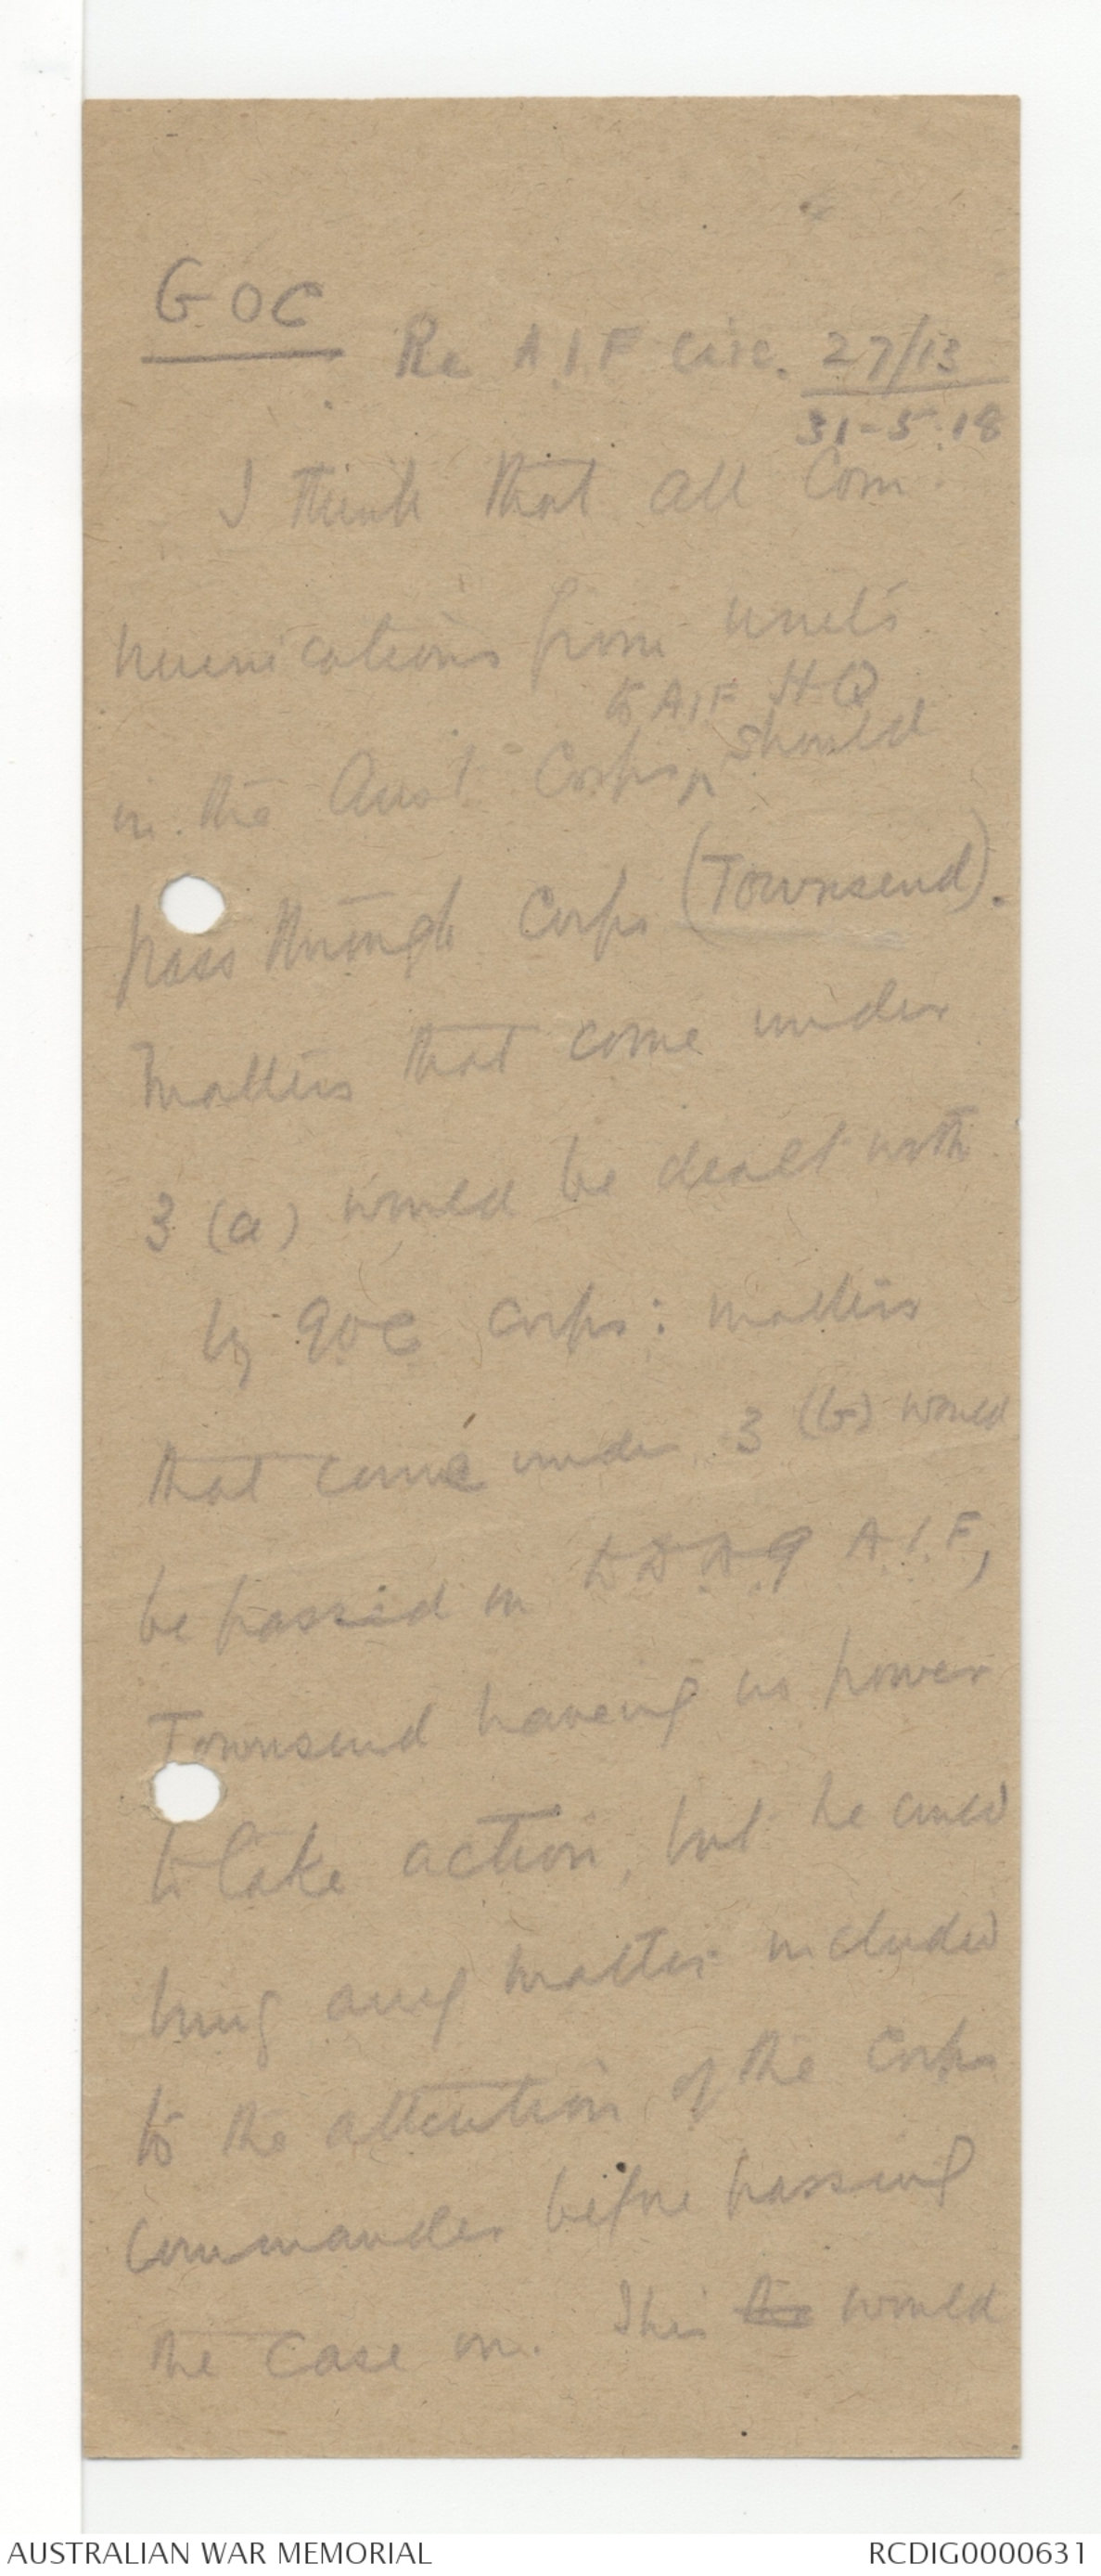 GOC
Re A.I.F circ. 27/13
31-5-18
I think that all Com-
munications from units
to AIF HQ
in the Aust. Corps ^ should
pass through Corps (Townsend).
Matters that come under
3 (a) would be dealt with
by GOC Corps: matters
that come under 3 (b) would
be passed on D.D.A.G A.I.F,
Townsend having no power
to take action, but he could
bring any matter included
to the attention of the Corps
Commander before passing
the case on. This the would
AUSTRALIAN WAR MEMORIAL
RCDIG0000631